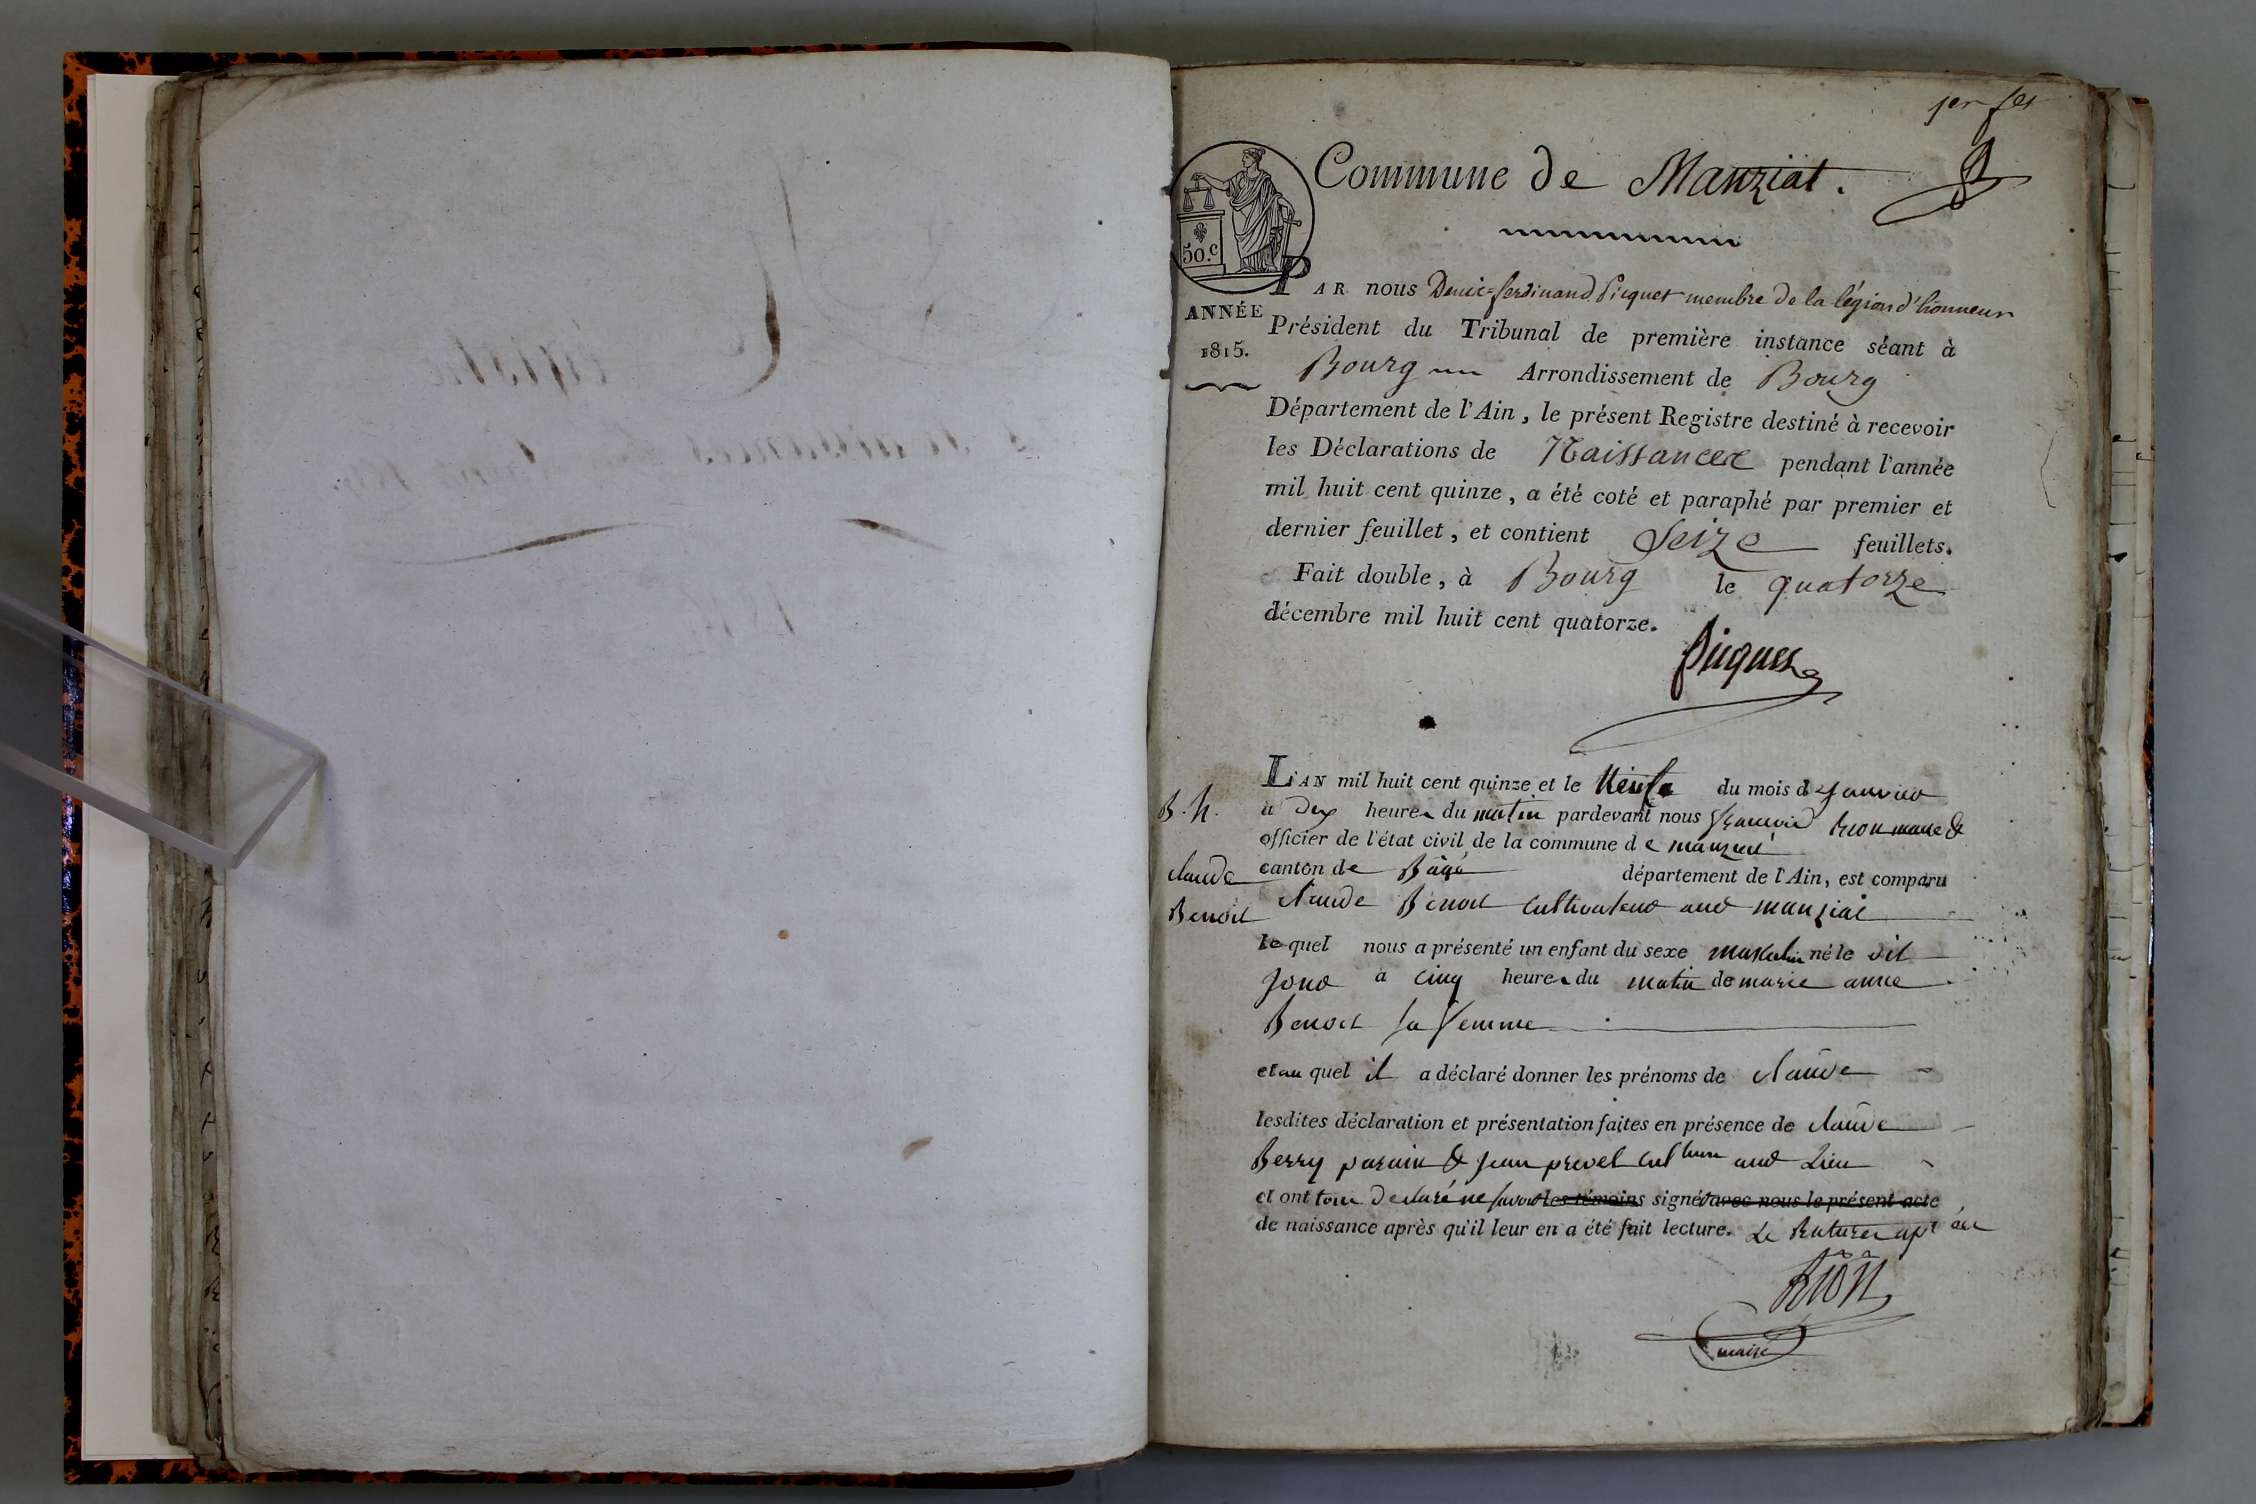 1er fet
Commune de Manziat.
50.c
PAR nous Denis=ferdinand Picquet membre de la légion d'honneur
ANNÉE
1815.
Président du Tribunal de première instance séant à
Bourg Arrondissement de Bourg
Département de l'Ain, le présent Registre destiné à recevoir
les Déclarations de Naissances pendant l'année
mil huit cent quinze, a été coté et paraphé par premier et
dernier feuillet, et contient Seize feuillets.
Fait double, à Bourg le quatorze
décembre mil huit cent quatorze.
Picquet
L'AN mil huit cent quinze et le Neufe du mois de janvier
B. N.
à dix heures du matin pardevant nous françois Rion maire &
officier de l'état civil de la commune de manziat
canton de Bâgé département de l'Ain, est comparu
Claude
Benoit
Claude Benoit cultivateur aud manziat
lequel nous a présenté un enfant du sexe maskulin né le dit
jour à cinq heures du matin de marie anne
Benoit sa femme
et au quel il a déclaré donner les prénoms de Claude
lesdites déclaration et présentation faites en présence de Claude
Berry parain & jean prevel aud Lieu
et ont tous declaré ne savoir les témoins signér avec nous le présent acte
de naissance après qu'il leur en a été fait lecture.
Rion
maire